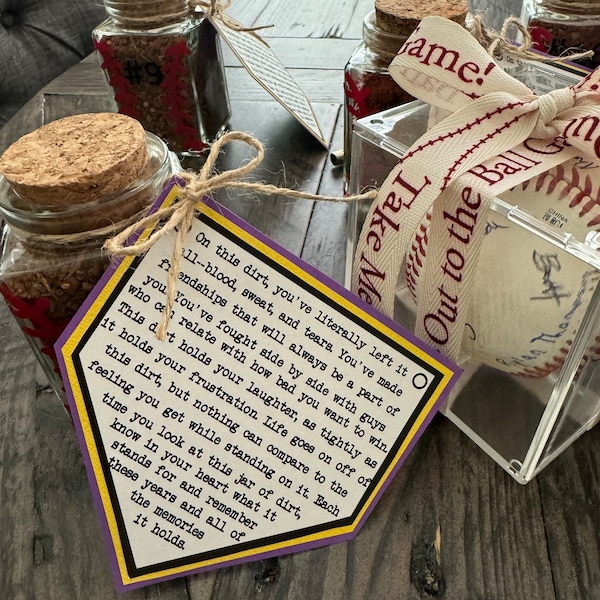 #9
Game!
Take Me
Out to the Ball Game
CHINA
On this dirt, you've literally left it
all-blood, sweat, and tears. You've made
friendships that will always be a part of
you. You've fought side by side with guys
who can relate with how bad you want to win
This dirt holds your laughter, as tightly as
it holds your frustration. Life goes on off of
this dirt, but nothing can compare to the
feeling you get while standing on it. Each
time you look at this jar of dirt,
know in your heart what it
stands for and remember
these years and all of
the memories
it holds.